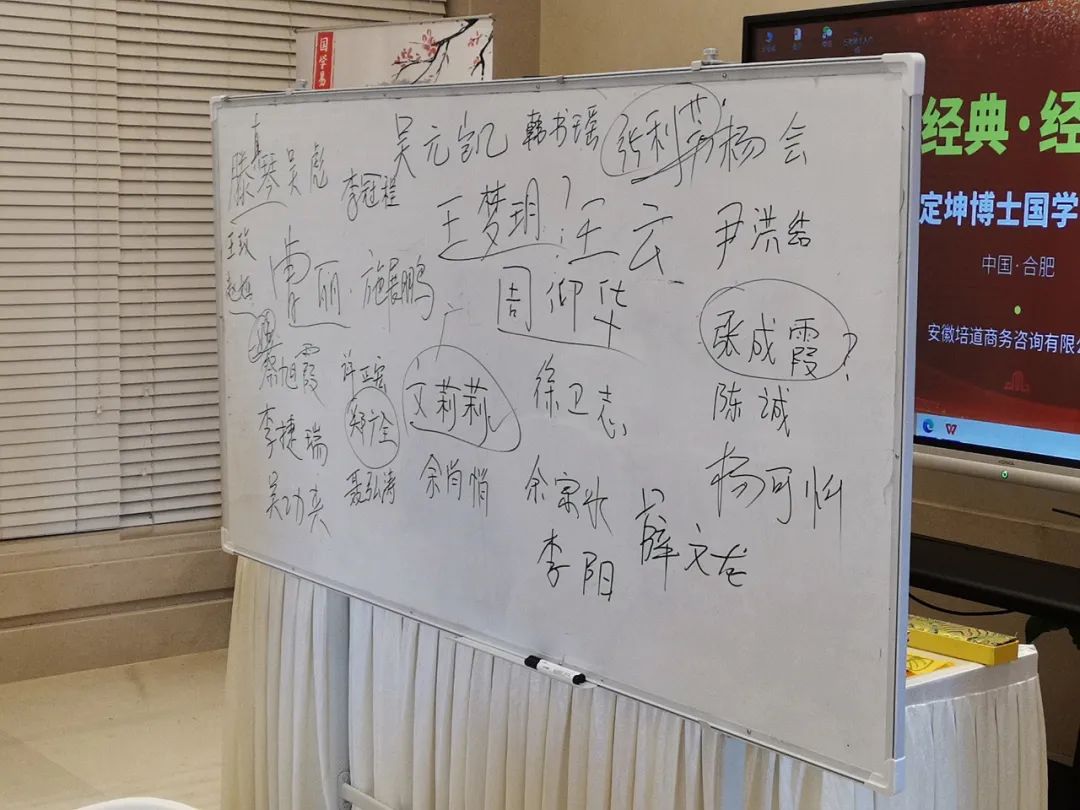 国学易
吴元凯 韩书瑶 张利 杨会
滕真琴 吴彪 李冠程
王梦玥?王云 尹洪
王玫
曹丽·施展鹏 周仰华
张成霞?
蔡旭霞 许 徐卫志
文莉莉 陈诚
李捷瑞 郑全
吴功 聂弘涛 余肖悄 余宗 杨可
李阳 薛文龙
经典·经
定坤博士国学
中国·合肥
安徽培道商务咨询有限公